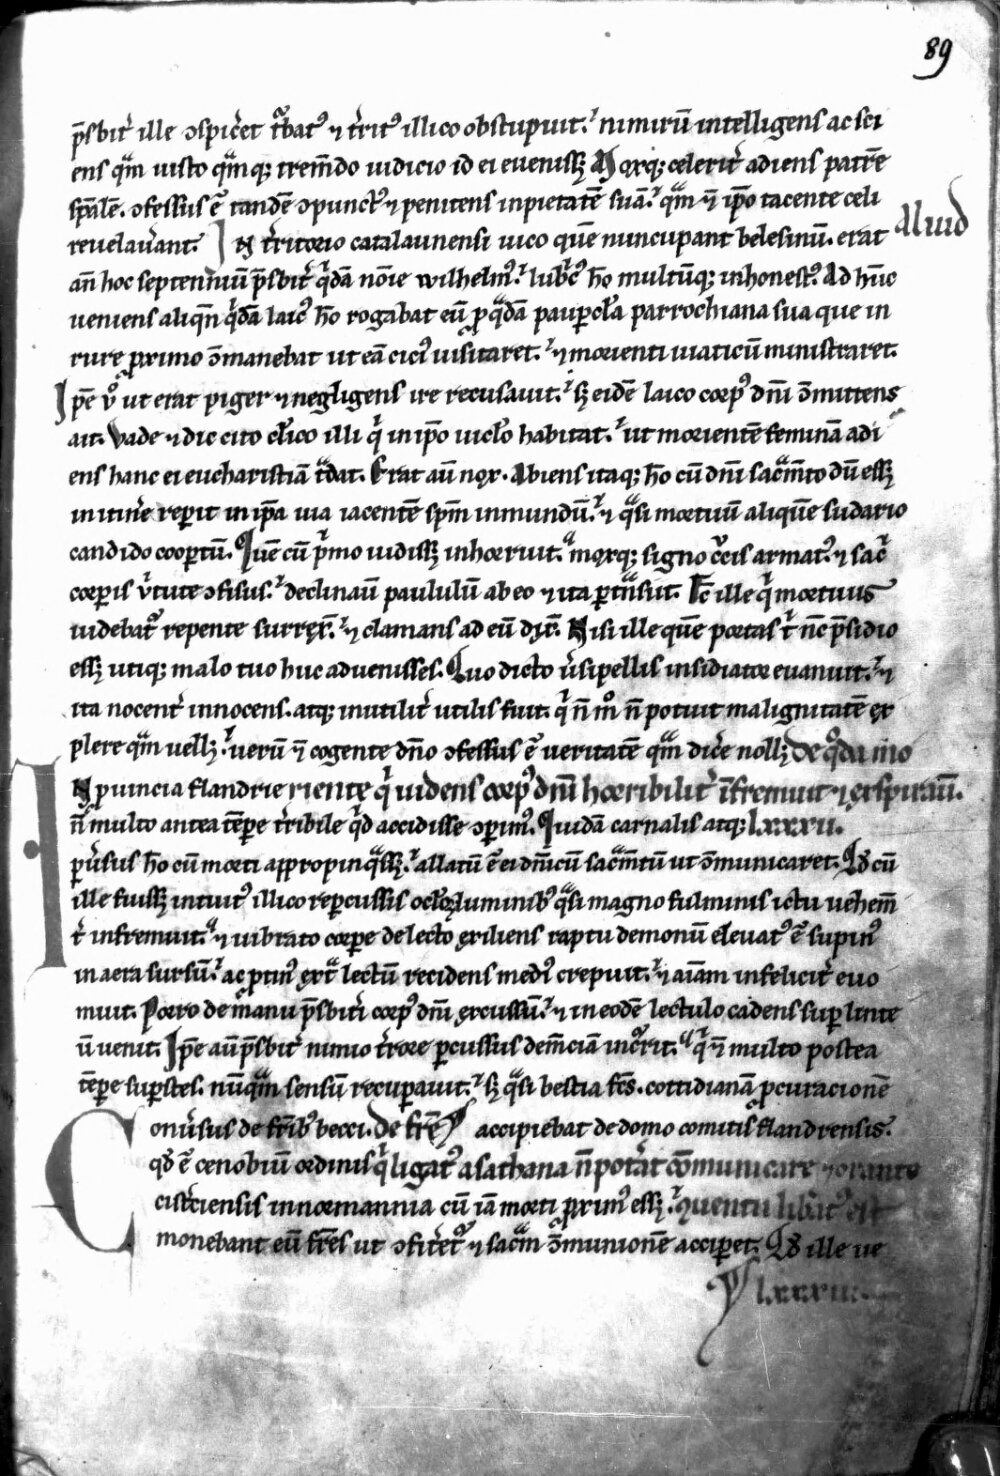 89
p̄sbit᷒ ille ɔspic̓et t̃bat᷒ ⁊ t̓rit᷒ illico obstupuit. nimirū intelligens ac sci
ens qm̃ iusto qm̃q; tremēdo iudicio id ei eueniss; Moxq; celerit̓ adiens patrē
sp̄alē. ɔfessus ē tandē ɔpunct᷒ ⁊ penitens inpietatē suā. qm̃ ⁊ ip̄o tacente celi
reuelau̓ant. IN t̓ritorio catalaunensi uico quē nuncupant belesinū. erat
Aliud
an̄ hoc septenniū p̄sbit̓ q̓dā nōīe wilhelm᷒. lubc̓᷒ h̄o multūq; inhonest᷒. Ad hūc
ueniens aliqn̄ q̓dā laic᷒ h̄o rogabat eū ꝓ q̃dā paupcl̄a parrochiana sua que in
rure ꝓximo ɔ̄manebat ut eā cici᷒ uisitaret. ⁊ morienti uiaticū ministraret.
Ip̄e v̊ ut erat piger ⁊ negligens ire recusauit. s; eidē laico corp᷒ dn̄i ɔ̄mittens
ait. Vade ⁊ dic cito cl̄ico illi q̓ in ip̄o uicl̄o habitat. ut morientē feminā adi
ens hanc ei eucharistiā t̃dat. Erat aū nox. Abiens itaq; h̄o cū dn̄i sac̃m̄to dū ess;
in itin̓e rep̱it in ip̄a uia iacentē sp̄m inmundū. ⁊ q̃si mortuū aliquē sudario
candido coop̱tū. Quē cū p̓mo uidiss; inhorruit. moxq; signo c̓cis armat᷒. ⁊ sac̓
corp̱is v̓tute ɔfisus. declinauit paululū ab eo ⁊ ita p̱t̃nsiit. Tc̄ ille q̓ mortuus
uidebat᷒ repente surrex̄. ⁊ clamans ad eū dix̄. Nisi ille quē portas t̓ nc̄ p̄sidio
ess; utiq; malo tuo huc aduenisses. Quo dicto v̓sipellis insidiator euanuit. ⁊
ita nocent̓ innocens. atq; inutilit̓ utilis fuit. q̓ n̄ m̊ n̄ potuit malignitatē ex
plere qm̃ uell;. uerū ⁊ cogente dn̄o ɔfessus ē ueritatē qm̃ dic̓e noll; De q̊dā mo
IN ꝓuincia flandrie riente q̓ uidens corp᷒ dn̄i horribilit̓ īfremuit ⁊ exspirauit.
n̄ multo antea tēp̱e t̓ribile qd̓ accidisse ɔp̱im᷒. Quidā carnalis atq; lxxxii.
p̱u̓sus h̄o cū morti appropinq̃ss;. allatū ē ei dn̄icū sac̃m̄tū ut ɔ̄municaret. Qd̓ cū
ille fuiss; intuit᷒ illico rep̱cussis oclo̓ꝝ luminib᷒ q̃si magno fulminis ictu uehem̄
t̓ infremuit. ⁊ uibrato corp̱e de lecto exiliens raptu demonū eleuat᷒ ē supin᷒
in aera sursū. ac ꝓtin᷒ ext̃ lectū recidens medi᷒ crepuit. ⁊ aīam infelicit̓ euo
muit. Porro de manu p̄sbit̓i corp᷒ dn̄i excussū. ⁊ in eodē lectulo cadens sup̱ linte
ū uenit. Ip̄e aū p̄sbit̓ nimio t̓rore p̱cussus dem̄ciā incurrit. q̓ ⁊ n̄ multo postea
tēp̱e sup̱stes. nūqm̃ sensū recup̱auit. s; q̃si bestia fc̄s. cottidianā ꝓcuracionē
Conu̓sus de fr̄ib᷒ becci. De fr̄e accipiebat de domo comitis flandrensis.
qd̓ ē cenobiū ordinis q̓ ligat᷒ a sathana n̄ pot̓at cōmunicare ⁊ orante
cist̓ciensis in normannia cū iā morti ꝓxim᷒ ess;. ɔuentu lib̓at᷒ est
monebant eū fr̄es ut ɔfit̓et᷒ ⁊ sac̃m ɔ̄munionē accip̱et. Qd̓ ille ue
lxxxiii.